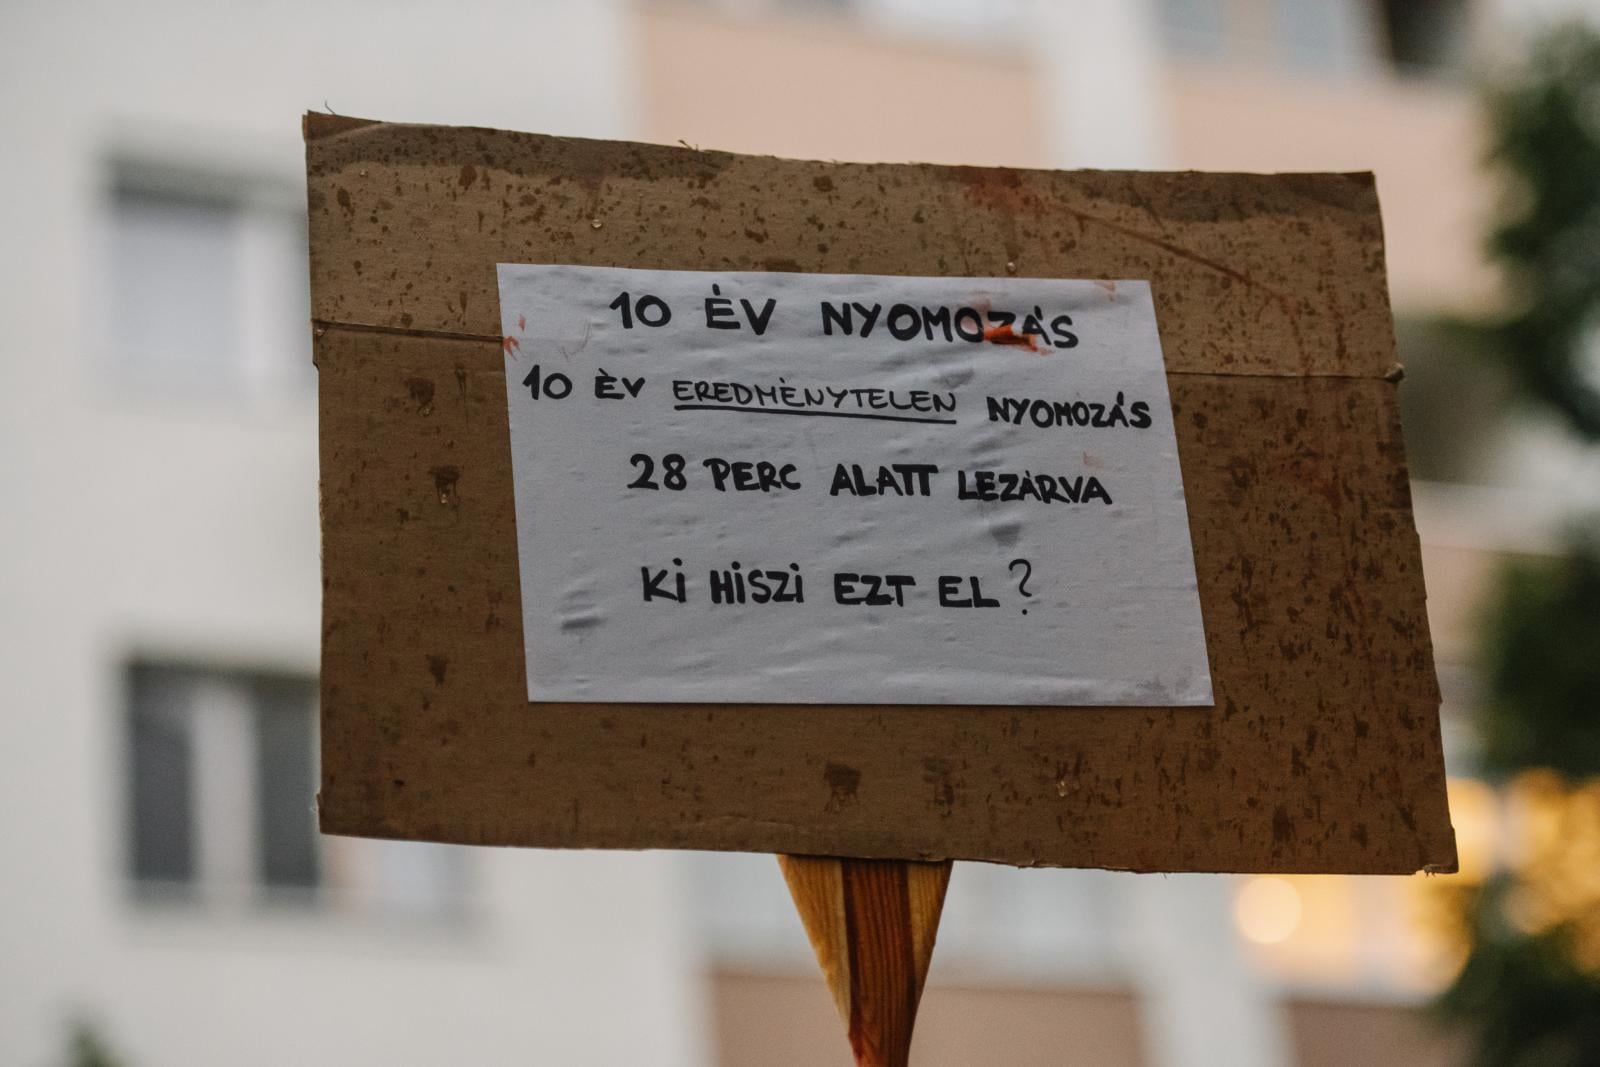 10 ÉV NYOMOZÁS
10 ÉV EREDMÉNYTELEN NYOMOZÁS
28 PERC ALATT LEZÁRVA
Ki HiSZi EZT EL?